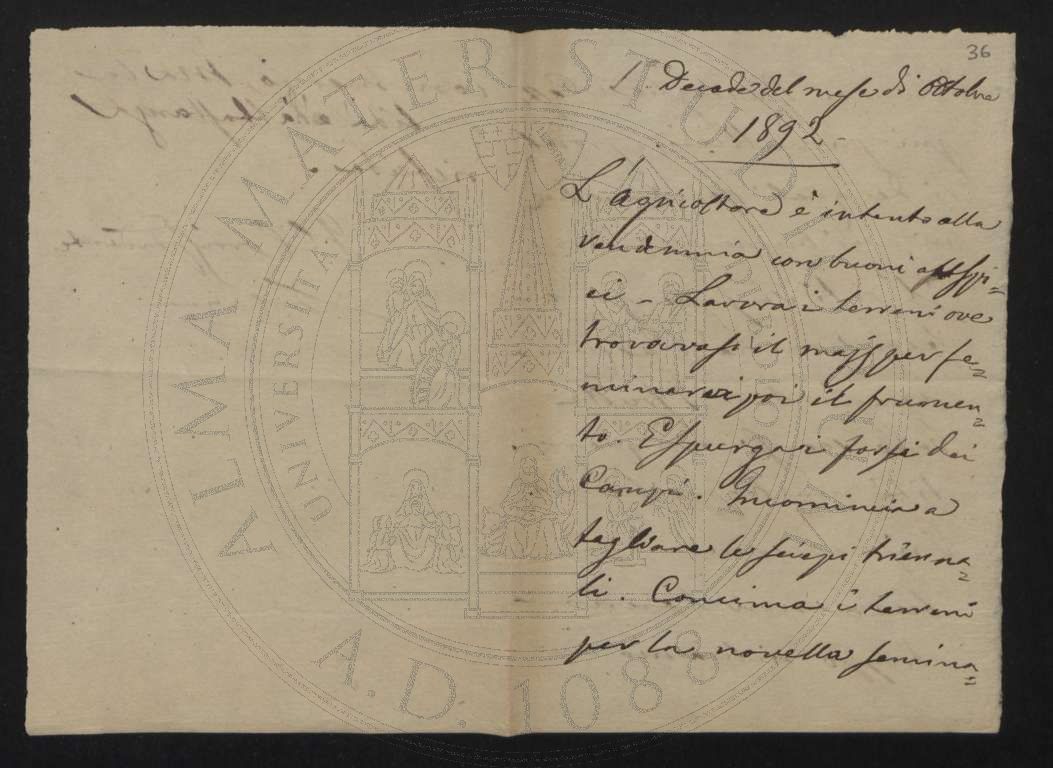 36
1. Decade del mese di Ottobre
1892
L'Agricoltore è intento alla
vendemmia con buoni auspi=
ci - Lavora i terreni ove
trovavasi il maïs per se=
minarvi poi il frumen=
to. Espurga i fossi dei
Campi. Incomincia a
tagliare le siepi trienna=
li. Concima i terreni
per la novella semina=
ALMA MATER STUDIORUM
UNIVERSITA
A.D. 1088